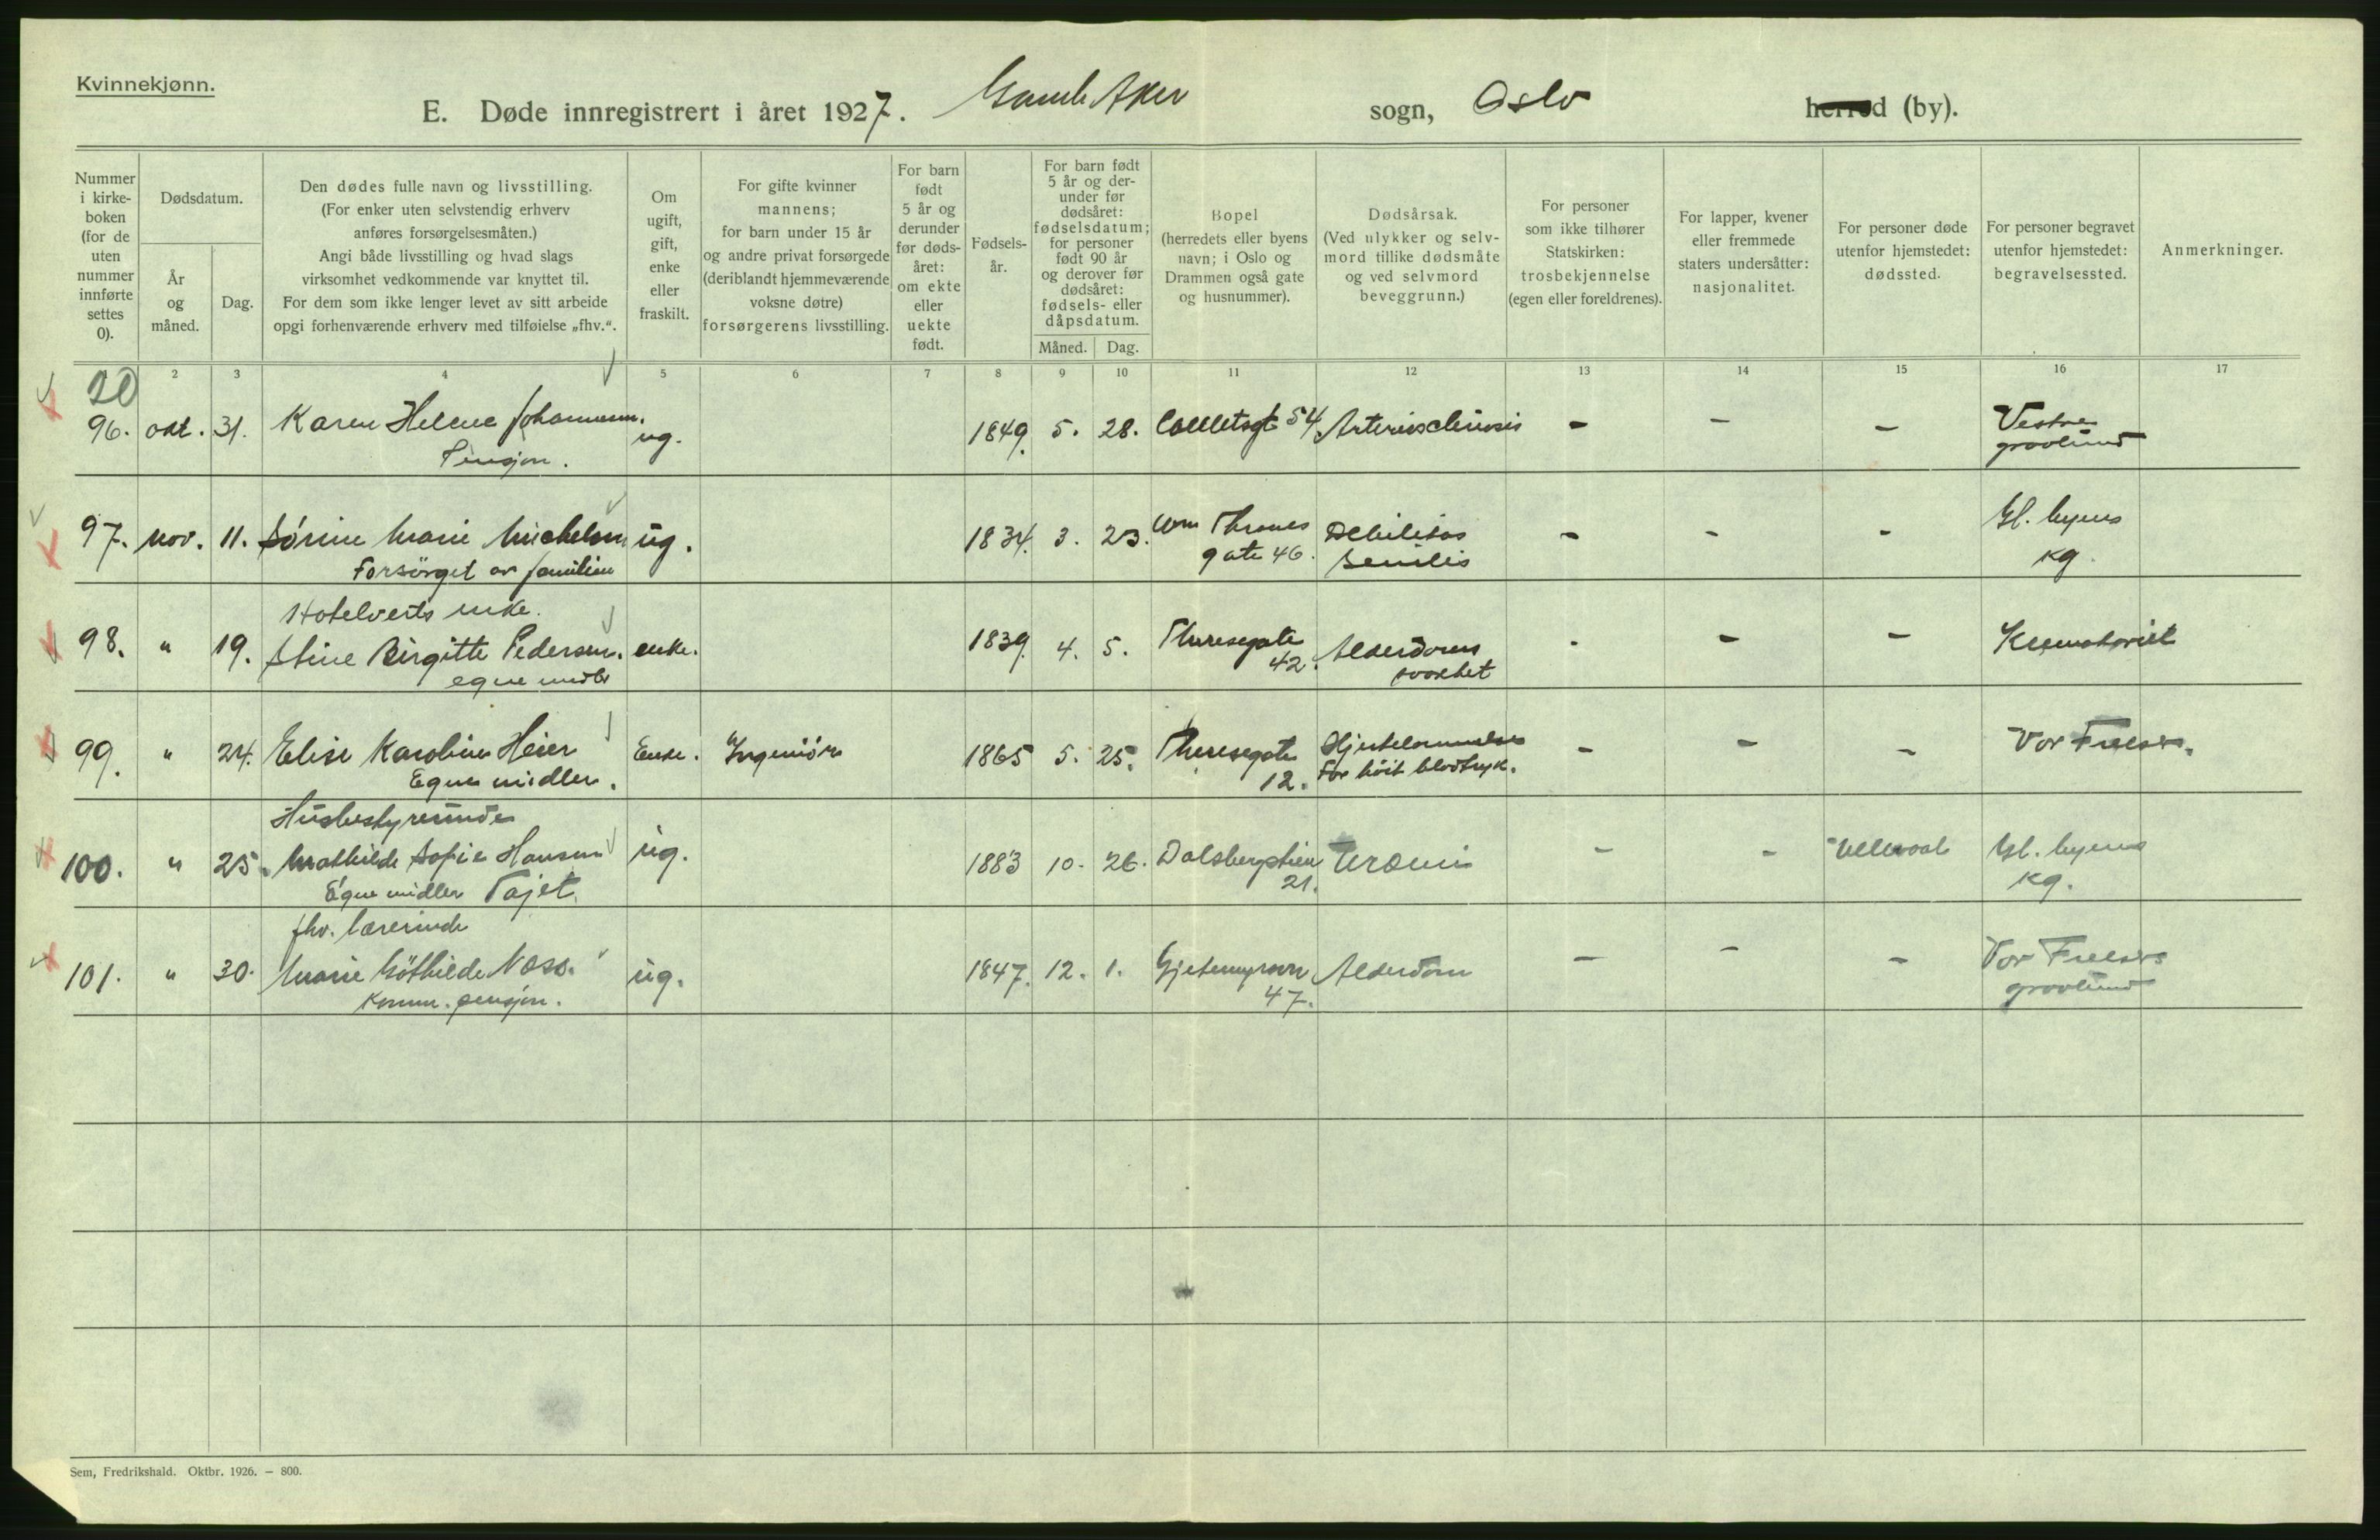 Kvinnekjønn.
E. Døde innregistrert i året 1927. Gamle Aker sogn, Oslo herred (by).
Nummer i kirkeboken (for de uten nummer innførte settes 0).
Dødsdatum.
År og måned.
Dag.
Den dødes fulle navn og livsstilling.
(For enker uten selvstendig erhverv
anføres forsørgelsesmåten.)
Angi både livsstilling og hvad slags
virksomhet vedkommende var knyttet til.
For dem som ikke lenger levet av sitt arbeide
opgi forhenværende erhverv med tilføielse „fhv.“.
Om ugift, gift, enke eller fraskilt.
For gifte kvinner
mannens;
for barn under 15 år
og andre privat forsørgede
(deriblandt hjemmeværende
voksne døtre)
forsørgerens livsstilling.
For barn født 5 år og derunder før dødsåret: om ekte eller uekte født.
Fødselsår.
For barn født 5 år og derunder før dødsåret: fødselsdatum; for personer født 90 år og derover før dødsåret: fødsels- eller dåpsdatum.
Måned.
Dag.
Bopel
(herredets eller byens
navn; i Oslo og
Drammen også gate
og husnummer).
Dødsårsak.
(Ved ulykker og selvmord tillike dødsmåte
og ved selvmord
beveggrunn.)
For personer
som ikke tilhører
Statskirken:
trosbekjennelse
(egen eller foreldrenes).
For lapper, kvener
eller fremmede
staters undersåtter:
nasjonalitet.
For personer døde
utenfor hjemstedet:
dødssted.
For personer begravet
utenfor hjemstedet:
begravelsessted.
Anmerkninger.
2 3 4 5 6 7 8 9 10 11 12 13 14 15 16 17
20
96. okt. 31. Karen Helene Johannesen. ug. 1849. 5. 28. Colletsgt 54 Arteriosclerosis - - - Vestre
Pensjon. gravlund
97. nov. 11. Sørine Marie Michelsen ug. 1834. 3. 23. Wm Thranes Debilitas - - - Gl. byens
Forsörget av familien gate 46. senilis kg.
Hotelverts enke.
98. " 19. Stine Birgitte Pedersen. enke. 1839. 4. 5. Theresegate Alderdoms - - - Krematoriet
egne midler 42. svakhet
99. " 24. Elise Karoline Heier Enke. Ingeniör 1865 5. 25. Theresegate Hjertelammelse - - - Vor Frelsers.
Egne midler. 12. For höit blodtryk.
Husbestyrerinde
100. " 25. Mathilde Sofie Hansen ug. 1883 10. 26. Dalsbergstien Uræmi - - Ullevaal Gl. byens
Egne midler Tajet. 21. kg.
fhv. lærerinde
101. " 30. Marie Göthilde Næss. ug. 1847. 12. 1. Gjetemyrsvn Alderdom - - - Vor Frelsers
Komm. pensjon. 47. gravlund
Sem, Fredrikshald. Oktbr. 1926. – 800.